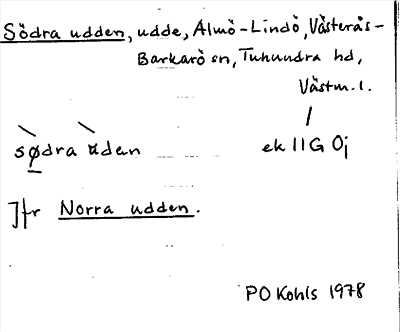 Södra udden, udde, Almö-Lindö, Västerås-
Barkarö sn, Tuhundra hd,
Västm. l.
sødra uden
ek 11G 0j
Jfr Norra udden.
PO Kohls 1978